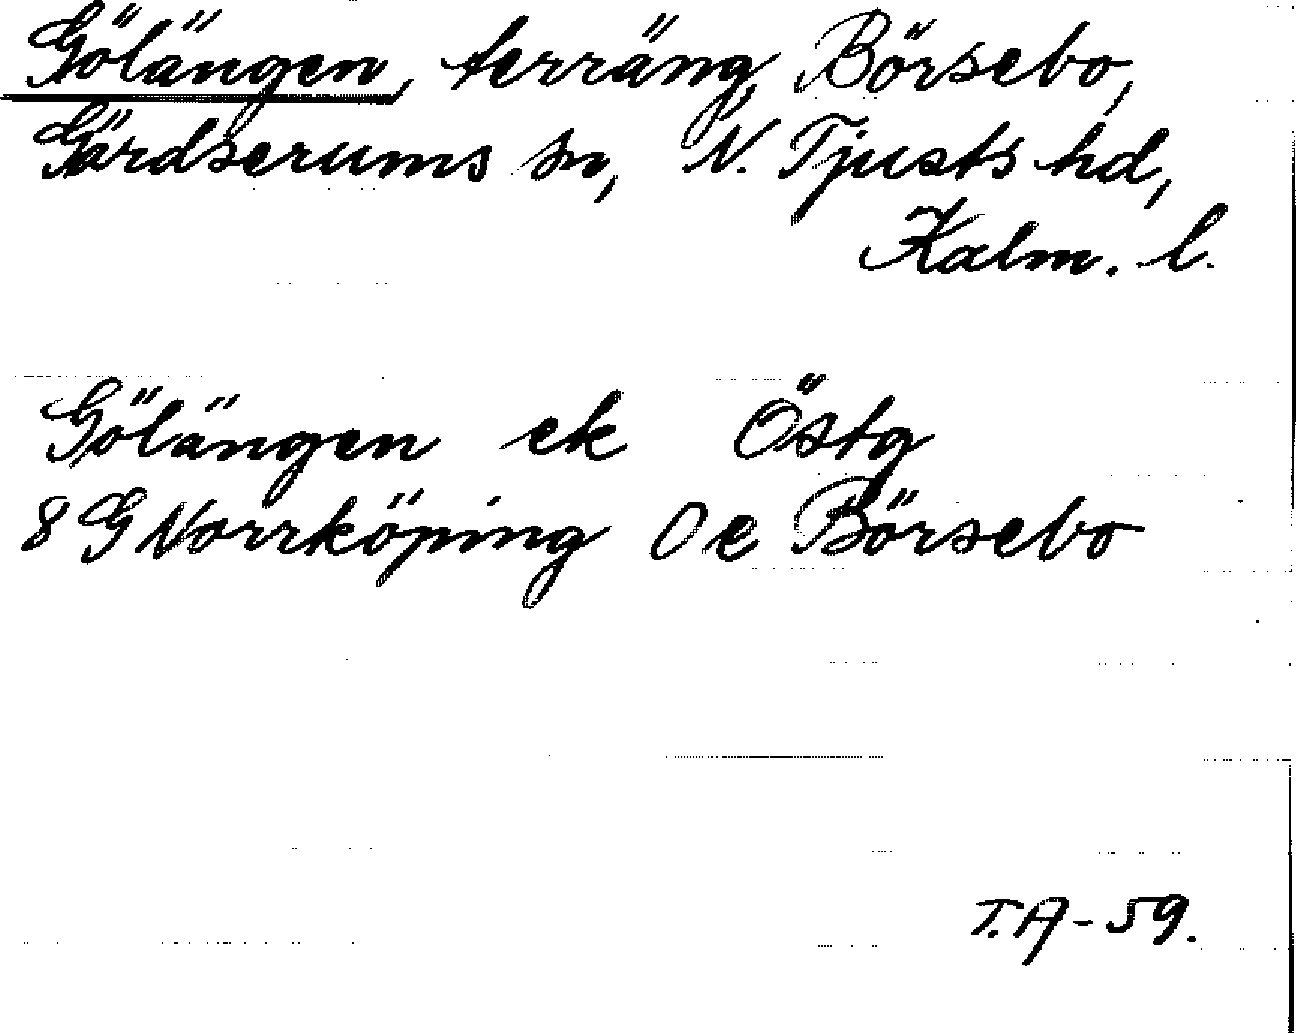 Gölängen, terräng, Börsebo,
Gärdserums sn, N. Tjusts hd,
Kalm. l.
Gölängen ek Östg
8 G Norrköping 0e Börsebo
T.A-59.